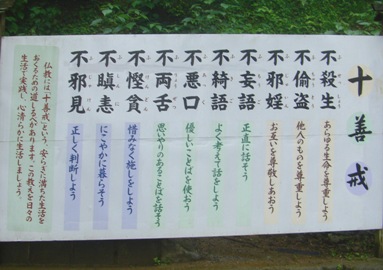 十善戒
不殺生
あらゆる生命を尊重しよう
不偸盗
他人のものを尊重しよう
不邪婬
お互いを尊敬しあおう
不妄語
正直に話そう
不綺語
よく考えて話をしよう
不悪口
優しいことばを使おう
不両舌
思いやりのあることばを話そう
不慳貪
惜みなく施しをしよう
不瞋恚
にこやかに暮らそう
不邪見
正しく判断しよう
仏教には、「十善戒」という、安らぎに満ちた生活を
おくるための道しるべがあります。この教えを日々の
生活で実践し、心清らかに生活しましょう。